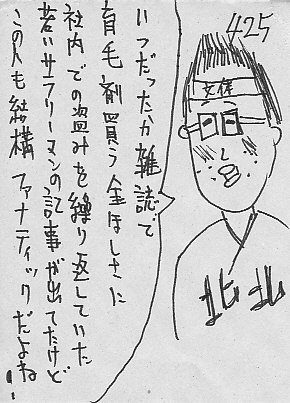 425
いつだったか雑誌で
育毛剤買う金ほしさに
社内での盗みを繰り返していた
若いサラリーマンの記事が出てたけど
この人も結構ファナティックだよね!